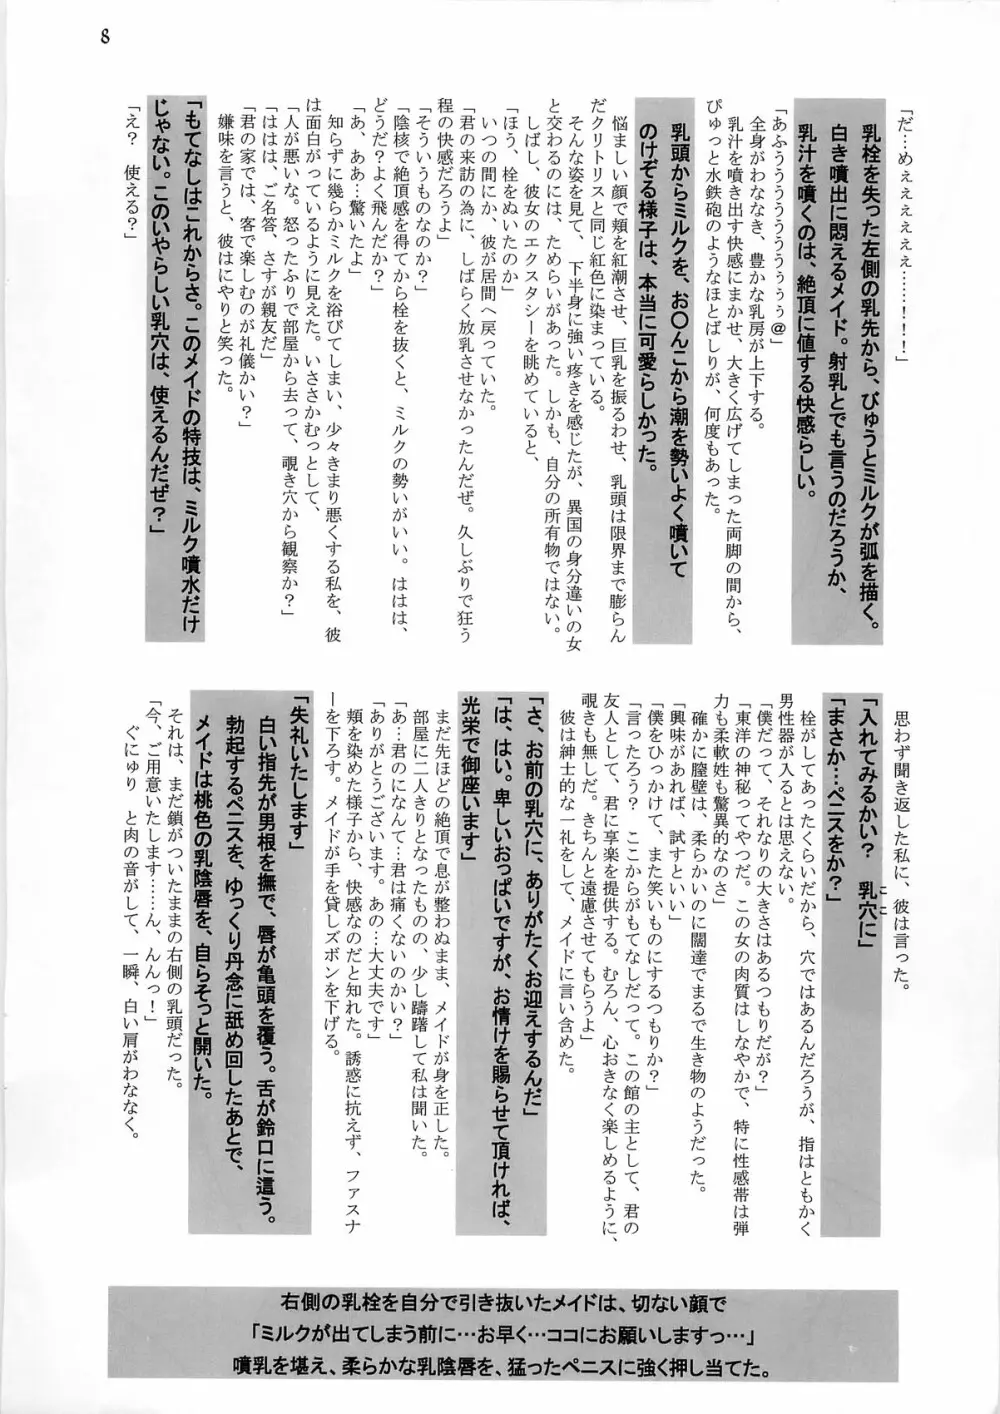 8
「だ…めぇぇぇぇぇぇ………!!!!」
乳栓を失った左側の乳先から、びゅうとミルクが弧を描く。
白き噴出に悶えるメイド。射乳とでも言うのだろうか、
乳汁を噴くのは、絶頂に値する快感らしい。
「あふううううううぅぅぅ@」
全身がわななき、豊かな乳房が上下する。
乳汁を噴き出す快感にまかせ、大きく広げてしまった両脚の間から、
ぴゅっと水鉄砲のようなほとばしりが、何度もあった。
乳頭からミルクを、お〇んこから潮を勢いよく噴いて
のけぞる様子は、本当に可愛らしかった。
悩ましい顔で頬を紅潮させ、巨乳を振るわせ、乳頭は限界まで膨らん
だクリトリスと同じ紅色に染まっている。
そんな姿を見て、下半身に強い疼きを感じたが、異国の身分違いの女
と交わるのには、ためらいがあった。しかも、自分の所有物ではない。
しばし、彼女のエクスタシーを眺めていると、
「ほう、栓をぬいたのか」
いつの間にか、彼が居間へ戻っていた。
「君の来訪の為に、しばらく放乳させなかったんだぜ。久しぶりで狂う
程の快感だろうよ」
「そういうものなのか?」
「陰核で絶頂感を得てから栓を抜くと、ミルクの勢いがいい。ははは、
どうだ?よく飛んだか?」
「あ、ああ…驚いたよ」
知らずに幾らかミルクを浴びてしまい、少々きまり悪くする私を、彼
は面白がっているように見えた。いささかむっとして、
「人が悪いな。怒ったふりで部屋から去って、覗き穴から観察か?」
「ははは、ご名答、さすが親友だ」
「君の家では、客で楽しむのが礼儀かい?」
嫌味を言うと、彼はにやりと笑った。
「もてなしはこれからさ。このメイドの特技は、ミルク噴水だけ
じゃない。このいやらしい乳穴は、使えるんだぜ?」
「え? 使える?」
思わず聞き返した私に、彼は言った。
「入れてみるかい? 乳穴に」
ここ
「まさか…ペニスをか?」
栓がしてあったくらいだから、穴ではあるんだろうが、指はともかく
男性器が入るとは思えない。
「僕だって、それなりの大きさはあるつもりだが?」
「東洋の神秘ってやつだ。この女の肉質はしなやかで、特に性感帯は弾
力も柔軟姓も驚異的なのさ」
確かに膣壁は、柔らかいのに闊達でまるで生き物のようだった。
「興味があれば、試すといい」
「僕をひっかけて、また笑いものにするつもりか?」
「言ったろう? ここからがもてなしだって。この館の主として、君の
友人として、君に享楽を提供する。むろん、心おきなく楽しめるように、
覗きも無しだ。きちんと遠慮させてもらうよ」
彼は紳士的な一礼をして、メイドに言い含めた。
「さ、お前の乳穴に、ありがたくお迎えするんだ」
「は、はい。卑しいおっぱいですが、お情けを賜らせて頂ければ、
光栄で御座います」
まだ先ほどの絶頂で息が整わぬまま、メイドが身を正した。
部屋に二人きりとなったものの、少し躊躇して私は聞いた。
「あ…君のになんて…君は痛くないのかい?」
「ありがとうございます。あの…大丈夫です」
頬を染めた様子から、快感なのだと知れた。誘惑に抗えず、ファスナ
ーを下ろす。メイドが手を貸しズボンを下げる。
「失礼いたします」
白い指先が男根を撫で、唇が亀頭を覆う。舌が鈴口に這う。
勃起するペニスを、ゆっくり丹念に舐め回したあとで、
メイドは桃色の乳陰唇を、自らそっと開いた。
それは、まだ鎖がついたままの右側の乳頭だった。
「今、ご用意いたします……ん、んんっ!」
ぐにゅり と肉の音がして、一瞬、白い肩がわななく。
右側の乳栓を自分で引き抜いたメイドは、切ない顔で
「ミルクが出てしまう前に…お早く…ココにお願いしますっ…」
噴乳を堪え、柔らかな乳陰唇を、猛ったペニスに強く押し当てた。